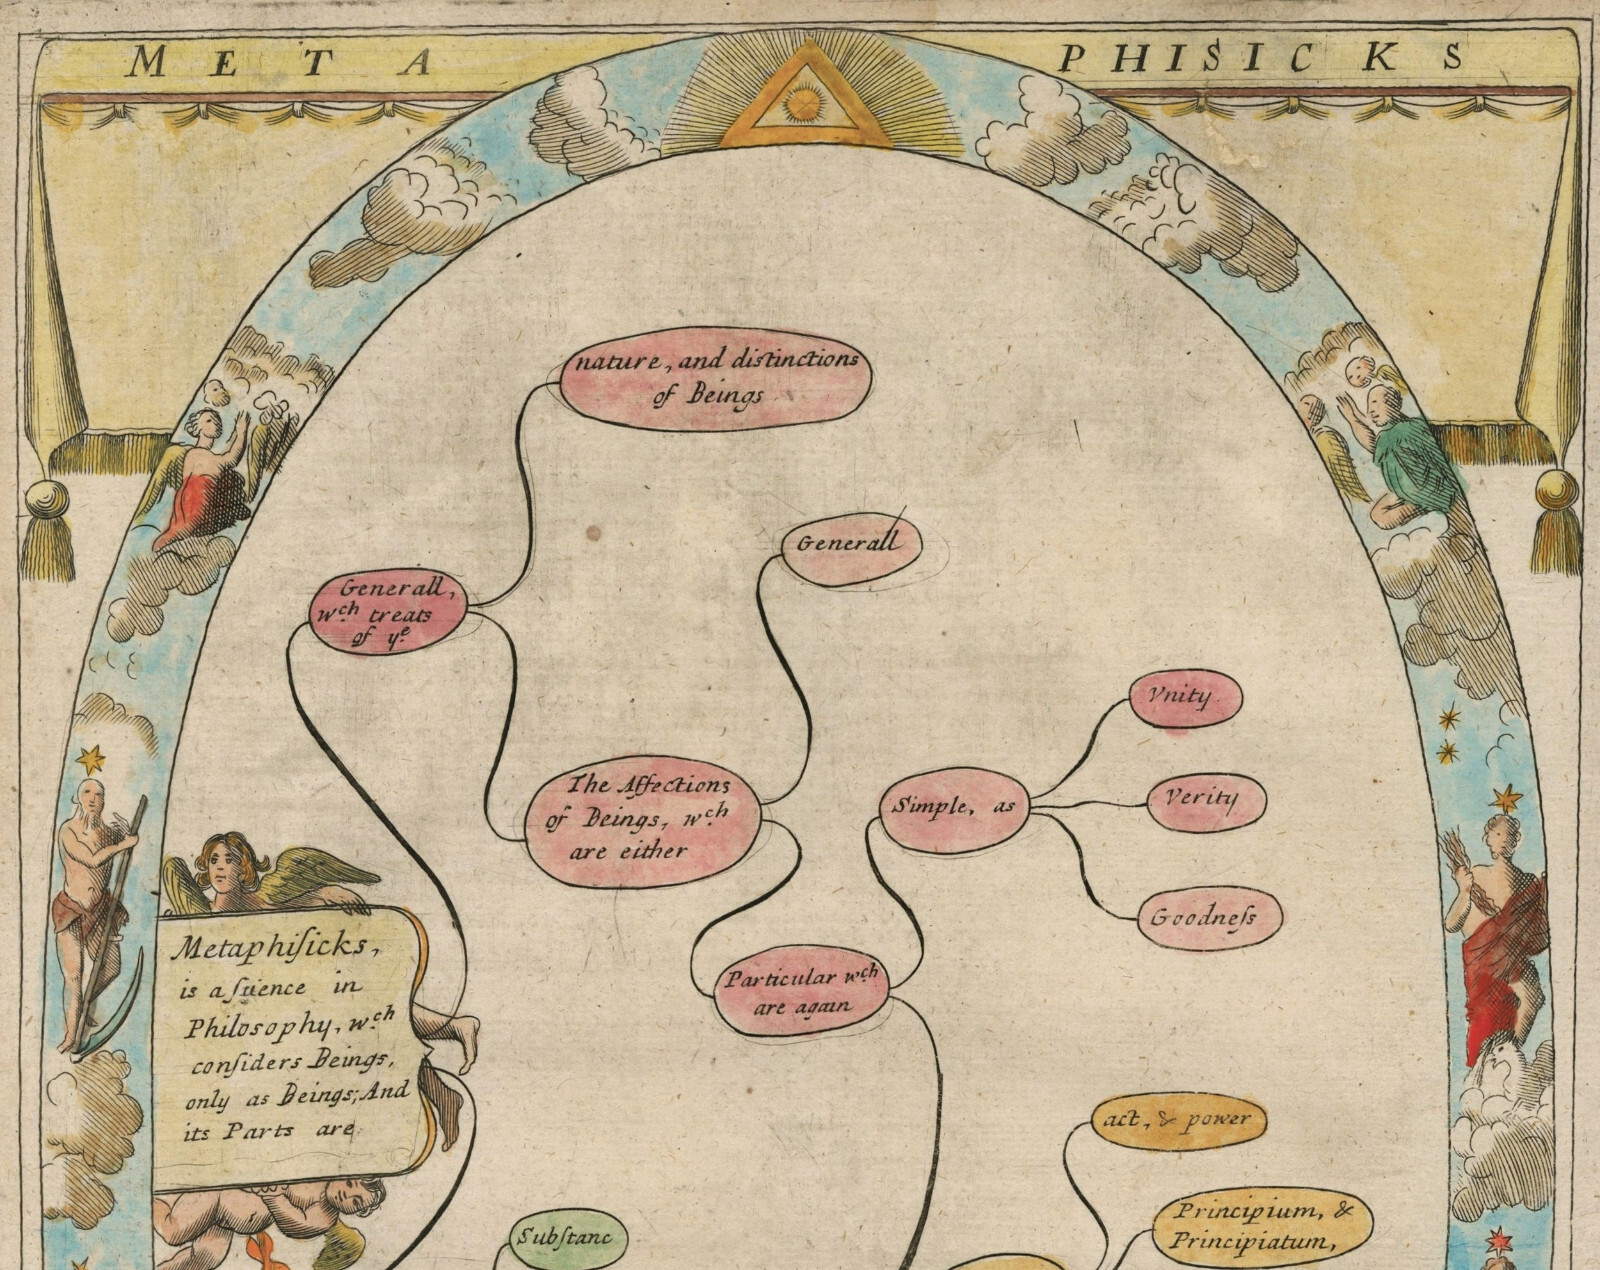 META PHISICKS
nature, and distinctions
of Beings
Generall
Generall,
wch treats
of ye
Vnity
The Affections
of Beings, wch
are either
Simple, as
Verity
Goodneſs
Particular wch
are again
Metaphiſicks,
is a ſcience in
Philosophy, wch
conſiders Beings,
only as Beings; And
its Parts are
act, & power
Principium, &
Principiatum,
Subſtanc